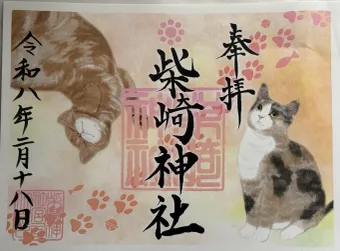 奉拝
柴崎神社
令和八年二月十八日